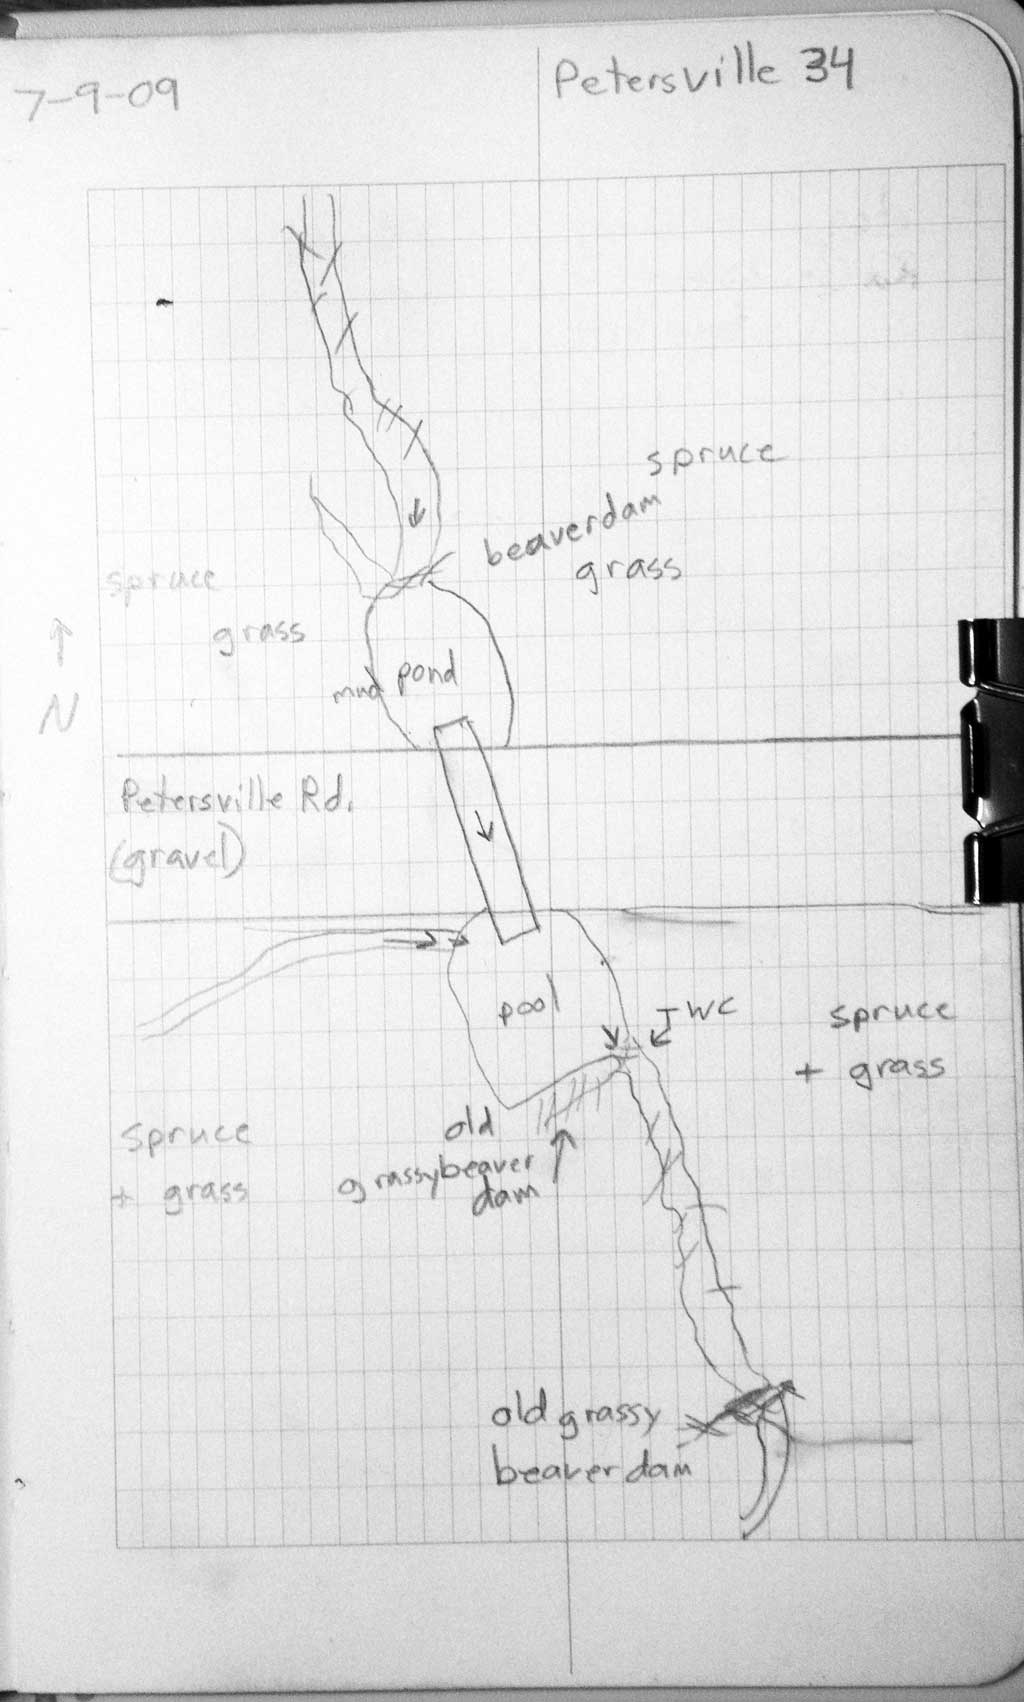 7-9-09
Petersville 34
spruce
beaverdam
grass
spruce
grass
N
mud
pond
Petersville Rd.
(gravel)
pool
TWC
spruce
+ grass
old
grassy beaver
dam
spruce
+ grass
old grassy
beaver dam